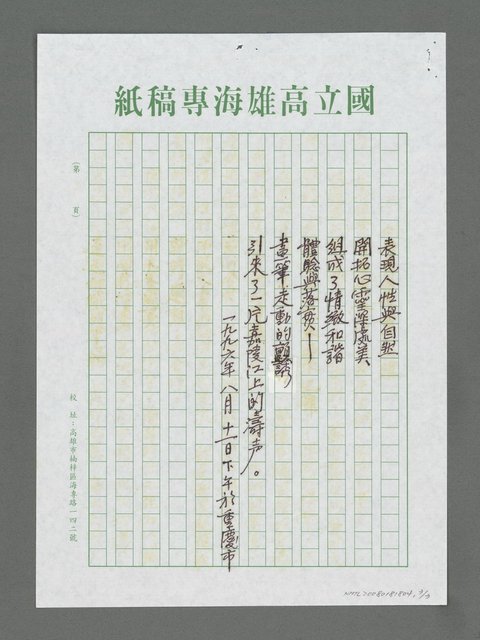 國立高雄海專稿紙
(第　頁)
表現人性與自然
開拓心靈深處美
組成了情緻和諧
體驗與落實！
畫筆走動的
引來了一片嘉陵江上的濤声。
一九九六年 八月 十一日下午於重慶市
校 址：高雄市楠梓區海專路一四二號
NMTL20080181804, 3/3